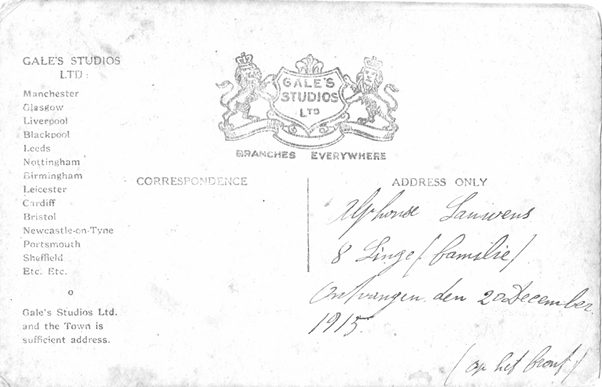 GALE'S STUDIOS
LTD:
Manchester
Glasgow
Liverpool
Blackpool
Leeds
Nottingham
Birmingham
Leicester
Cardiff
Bristol
Newcastle-on-Tyne
Portsmouth
Sheffield
Etc. Etc.
Gale's Studios Ltd.
and the Town is
sufficient address.
GALE'S
STUDIOS
LTD
BRANCHES EVERYWHERE
CORRESPONDENCE
ADDRESS ONLY
Alphonse Lauwens
8 Linge (familie)
Ontvangen den 20 December
1915
(op het front)